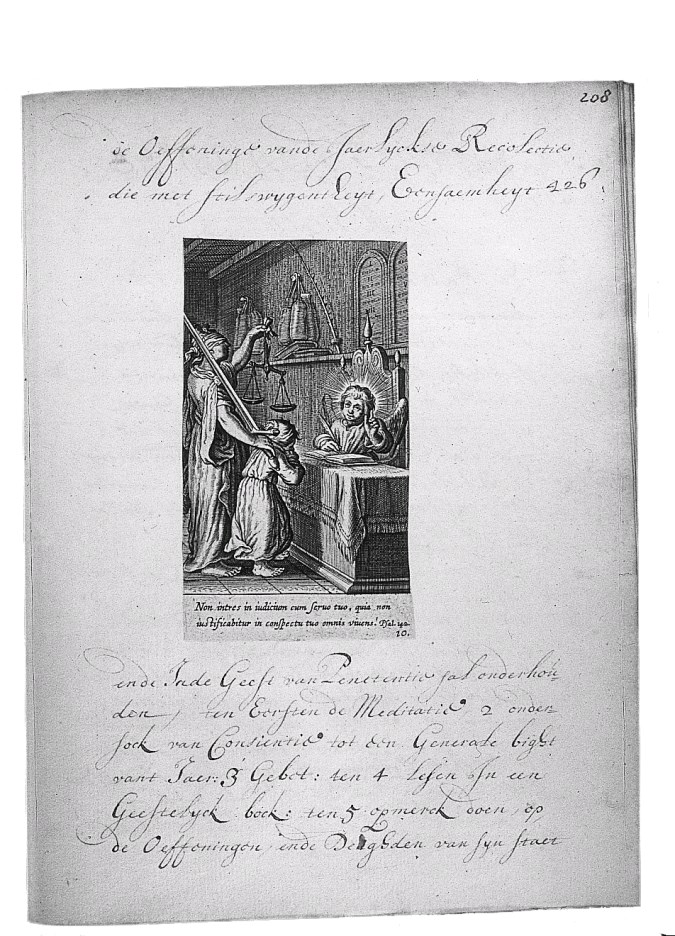 208
de Oeffeninge vande Jaerlyckse Recolectie,
die met stilswygentheyt, Eensaemheyt 426.
Non intres in iudicium cum seruo tuo, quia non
iustificabitur in conspectu tuo omnis viuens! Psal. 142.
10.
ende Inde Geest van Penetentie sal onderhou-
den, ten Eersten de Meditatie 2 onder-
soek van Consientie tot een Generale bight
vant Jaer: 3 Gebet: ten 4 Lesen In een
Geestelyck boek: ten 5 opmerck doen op
de Oeffeningen ende Deughden van syn staet